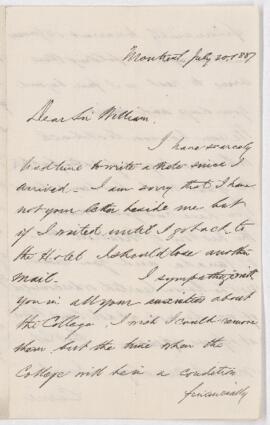 Montreal, July 20, 1887
Dear Sir William,
I have scarcely
had time to write a note since I
arrived - I am sorry that I have
not your letter beside me but
if I waited until I got back to
the Hotel I should lose another
mail. I sympathize with
you in all your anxieties about
the College. I wish I could remove
them but the time when the
College will be in a condition
financially